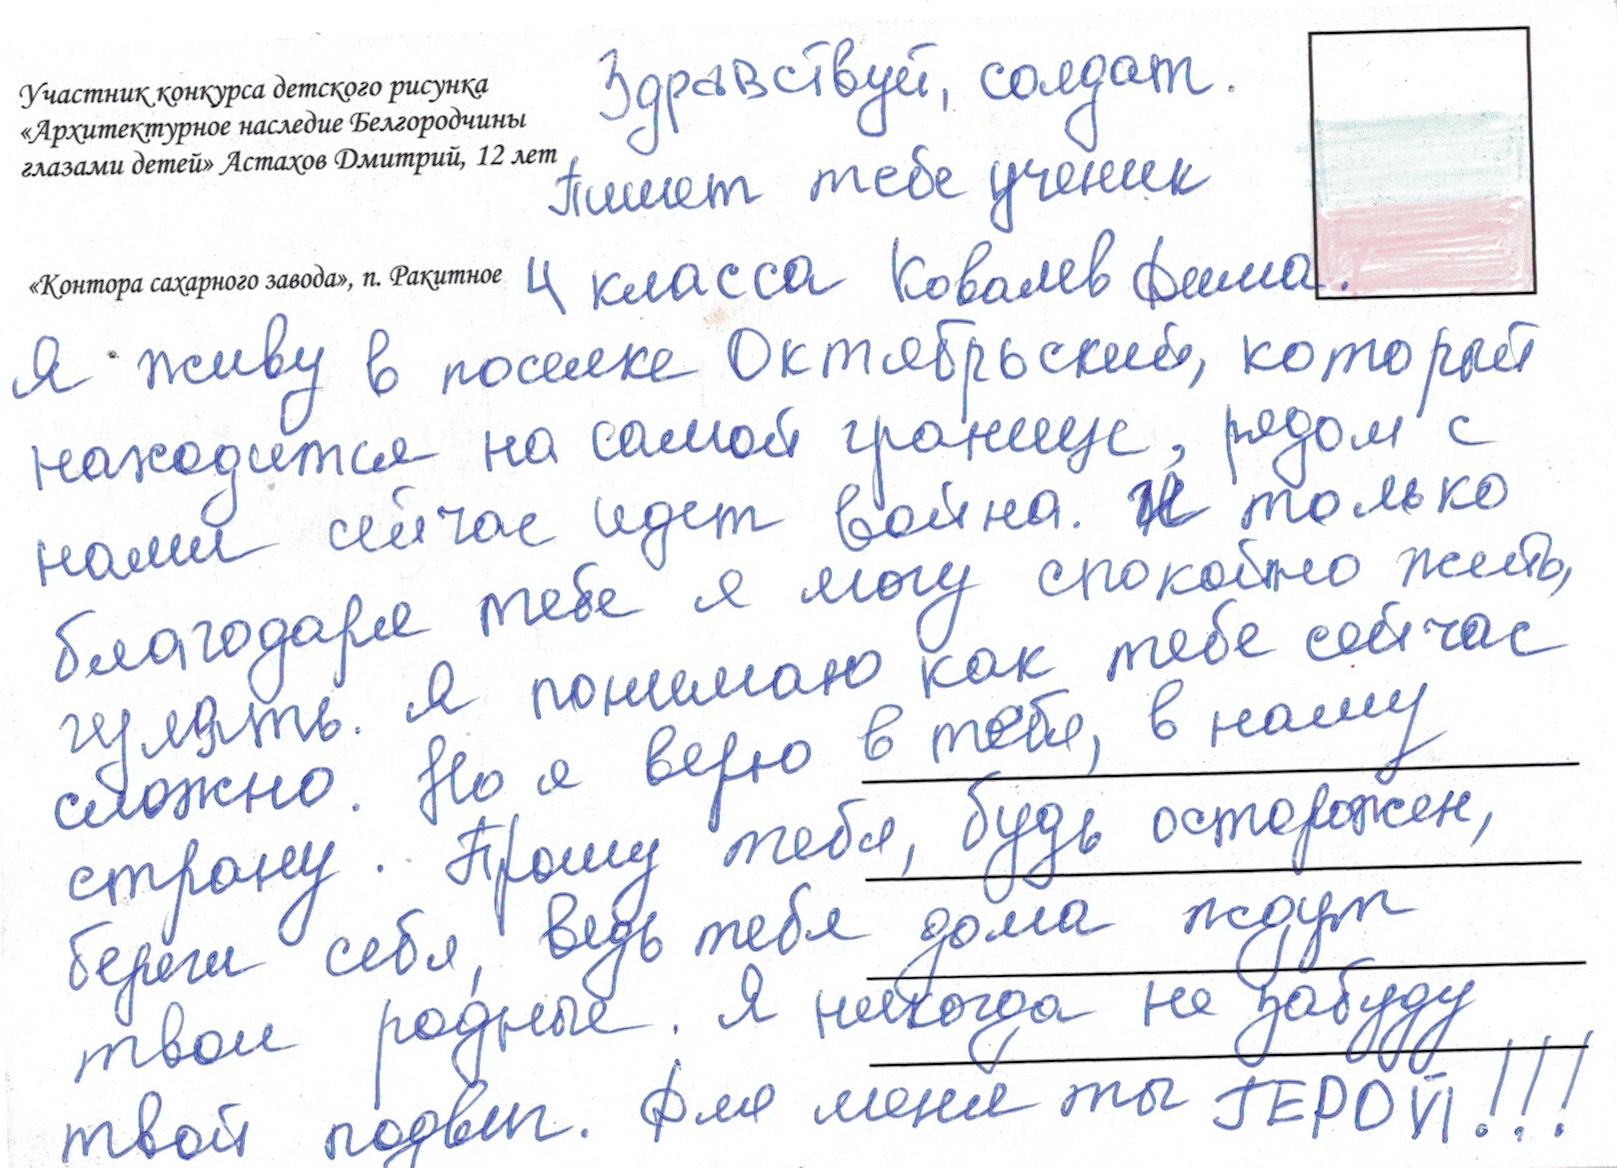 Участник конкурса детского рисунка
«Архитектурное наследие Белгородчины
глазами детей» Астахов Дмитрий, 12 лет
«Контора сахарного завода», п. Ракитное
Здравствуй, солдат.
Пишет тебе ученик
4 класса Ковалев Дима.
Я живу в поселке Октябрьский, который
находится на самой границе, рядом с
нами сейчас идет война. И только
благодаря тебе я могу спокойно жить,
гулять. Я понимаю как тебе сейчас
сложно. Но я верю в тебя, в нашу
страну. Прошу тебя, будь осторожен,
береги себя, ведь тебя дома ждут
твои родные. Я никогда не забуду
твой подвиг. Для меня ты ГЕРОЙ!!!